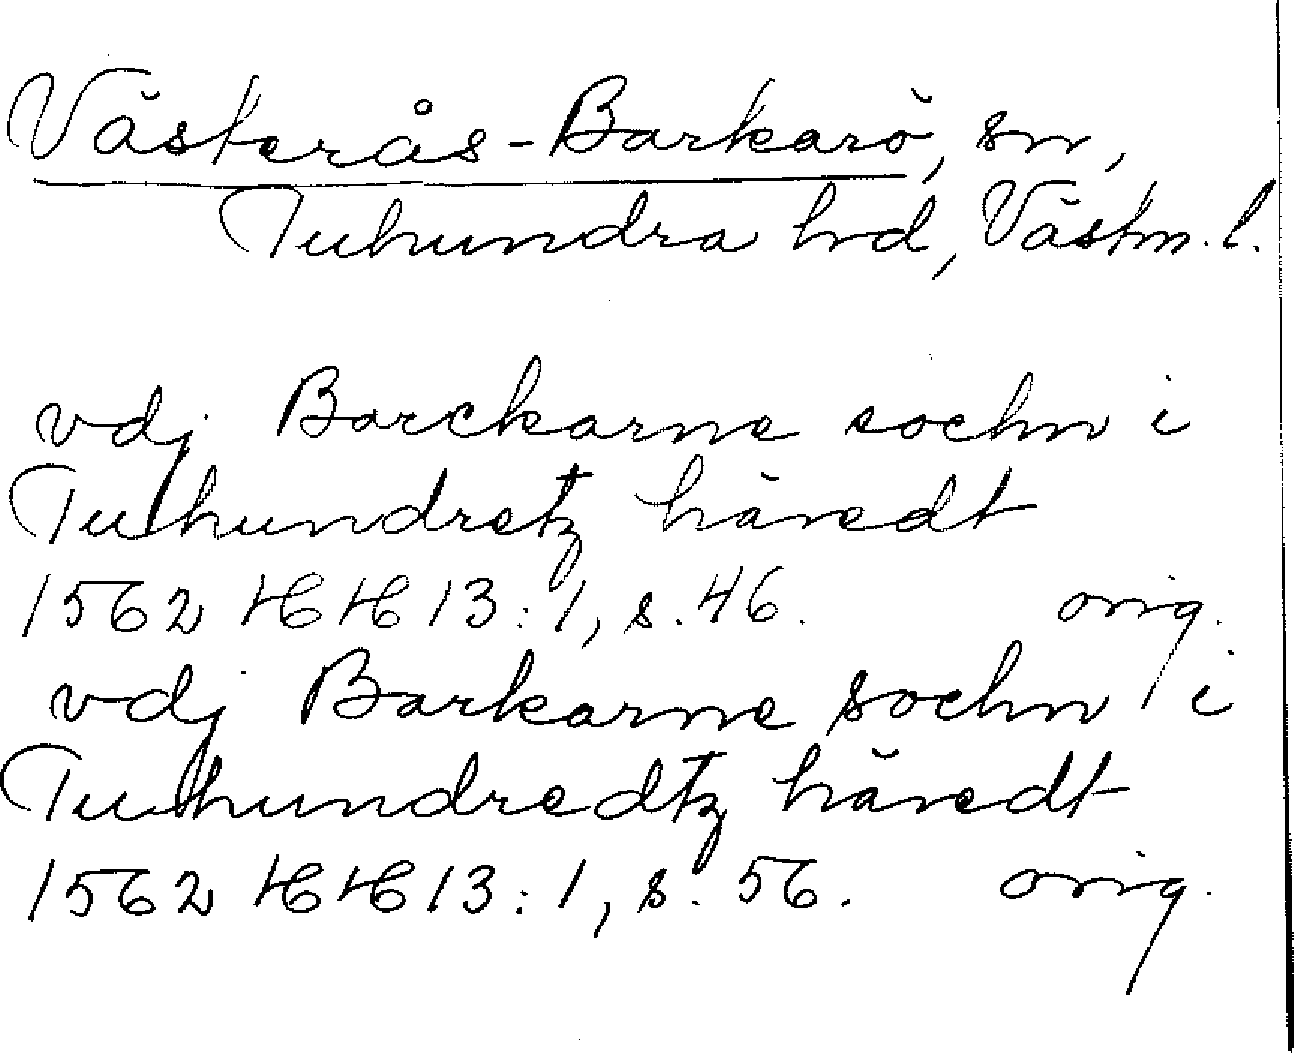 Västerås-Barkarö, sn,
Tuhundra hrd, Västm. l.
vdj Barckarne sochn i
Tuhundretz häredt
1562 HH 13:1, s. 46. orig.
vdj Barkarne sochn i
Tuhundredtz häredt
1562 HH 13:1, s. 56. orig.